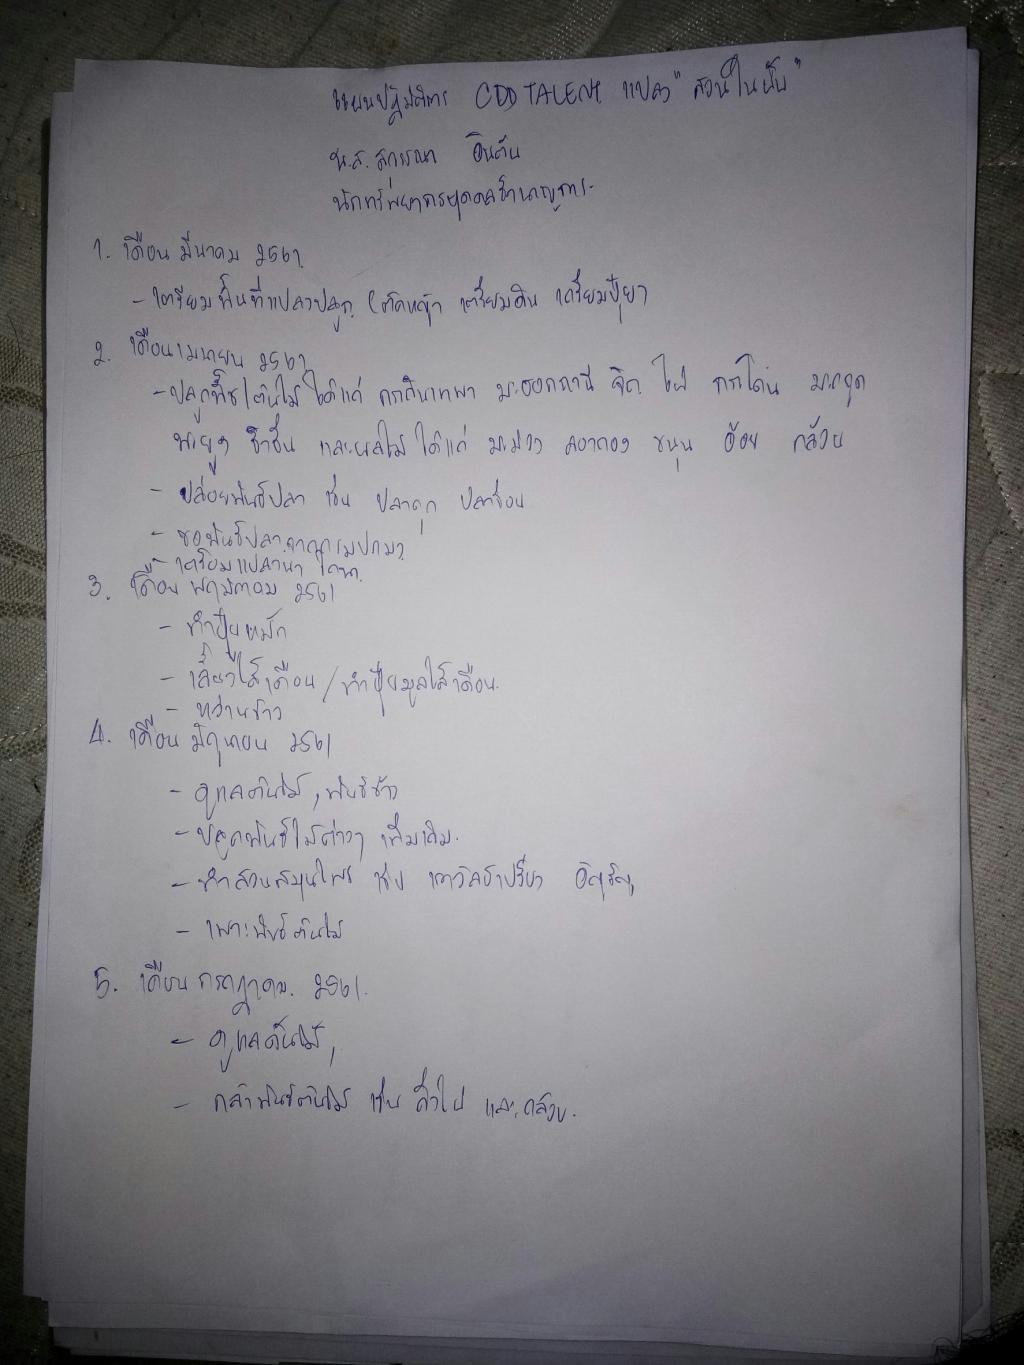 แผนปฏิบัติการ CDD TALENT แปลง "สวนในฝัน"
น.ส. อินต๊ะ
นักทรัพยากรบุคคลชำนาญการ
1. เดือน มีนาคม 2561
- เตรียมพื้นที่แปลงปลูก (ตัดหญ้า เตรียมดิน เตรียมปุ๋ย)
2. เดือนเมษายน 2561
- ปลูกพืช/ต้นไม้ ได้แก่ กระถินเทพา มะฮอกกานี ไผ่ กระโดน มะกรูด
พะยูง และผลไม้ ได้แก่ มะม่วง ลองกอง ขนุน อ้อย กล้วย
- ปล่อยพันธุ์ปลา เช่น ปลาดุก ปลาช่อน
- ขอพันธุ์ปลาจากกรมประมง
- เตรียมแปลงนา
3. เดือน พฤษภาคม 2561
- ทำปุ๋ยหมัก
- เลี้ยงไส้เดือน / ทำปุ๋ยมูลไส้เดือน
- หว่านข้าว
4. เดือน มิถุนายน 2561
- ดูแลต้นไม้, พันธุ์ข้าว
- ปลูกพันธุ์ไม้ต่างๆ เพิ่มเติม
- ทำสวนสมุนไพร เช่น เถาวัลย์เปรียง อัญชัญ
- เพาะพันธุ์ต้นไม้
5. เดือน กรกฎาคม 2561
- ดูแลต้นไม้,
- กล้าพันธุ์ต้นไม้ เช่น กิ่งไผ่ และกล้วย